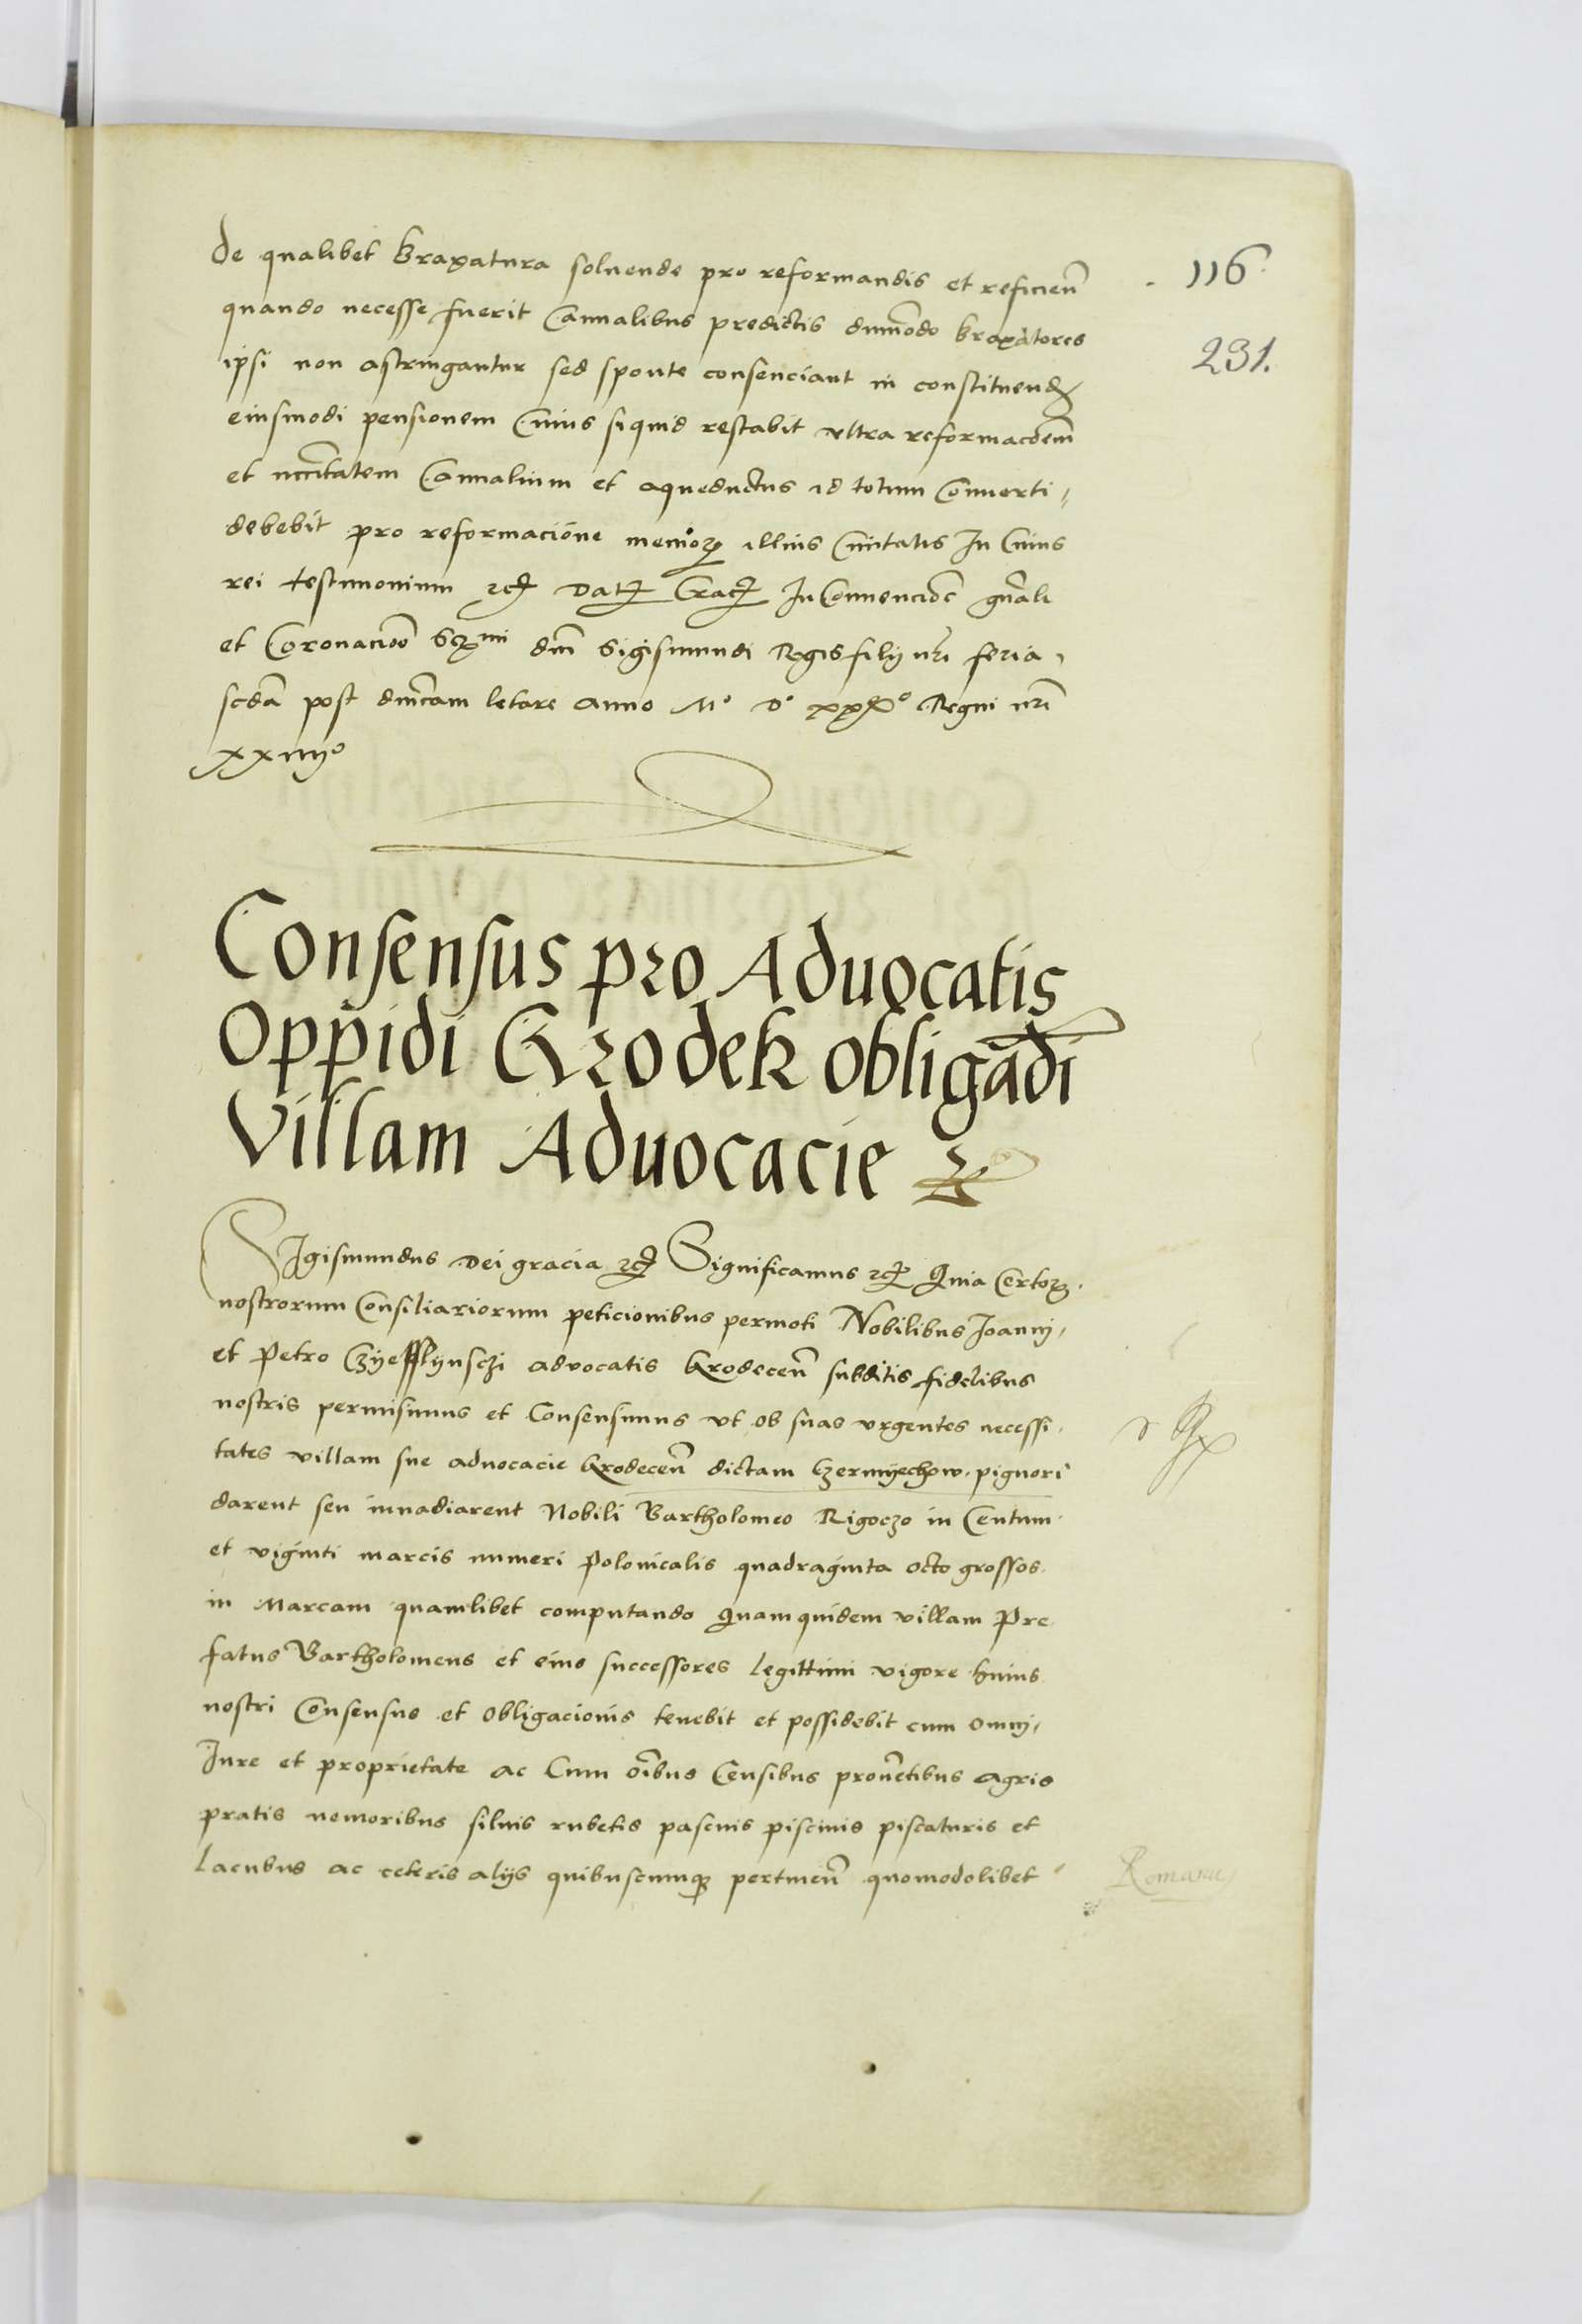 de qualibet braxatura soluende pro reformandis et reficien̄
116
quando necesse fuerit Cannalibus predictis dum̄odo braxatores
231.
ipsi non astringantur sed sponte consenciant in constituend
eiusmodi pensionem Cuius siquid restabit vltra reformac̄oem
et nccītatem Cannalium et aqueductus id totum Conuerti
debebit pro reformacione menioꝝ illius Ciuitatis In Cuius
rei testimonium ꝛcꝭ Datꝭ Cracꝭ In Conuencōe gn̄ali
et Coronaciōe Serᵐⁱ dn̄i Sigismundi Regis filij nr̄i feria
scd̄a post dn̄icam letare Anno Mº Dº xxxº Regni nr̄i
xxiiijº
Consensus pro Aduocatis
Oppidi Grodek obligan̄di
Villam Aduocacie ꝛc
SIgismundus Dei gracia ꝛcꝭ Significamus ꝛcꝭ Quia Certoꝝ
nostrorum Consiliariorum peticionibus permoti Nobilibus Joanni
et Petro advocatis Grodecen̄ subditis fidelibus
nostris permisimus et Consensimus vt ob suas vrgentes necessi
tates villam sue aduocacie Grodecen̄ dictam Czermyechow pignori
darent seu inuadiarent Nobili Bartholomeo Rigoczo in Centum
et viginti marcis numeri Polonicalis quadraginta octo grossos
in Marcam quamlibet computando Quamquidem villam Pre
fatus Bartholomeus et eius successores legittimi vigore huius
nostri Consensus et obligacionis tenebit et possidebit cum omni
Jure et proprietate ac Cum oībus Censibus prouētibus agris
pratis nemoribus siluis rubetis pascuis piscinis piscaturis et
Lacubus ac ceteris alijs quibuscumqꝫ pertinen̄ quomodolibet